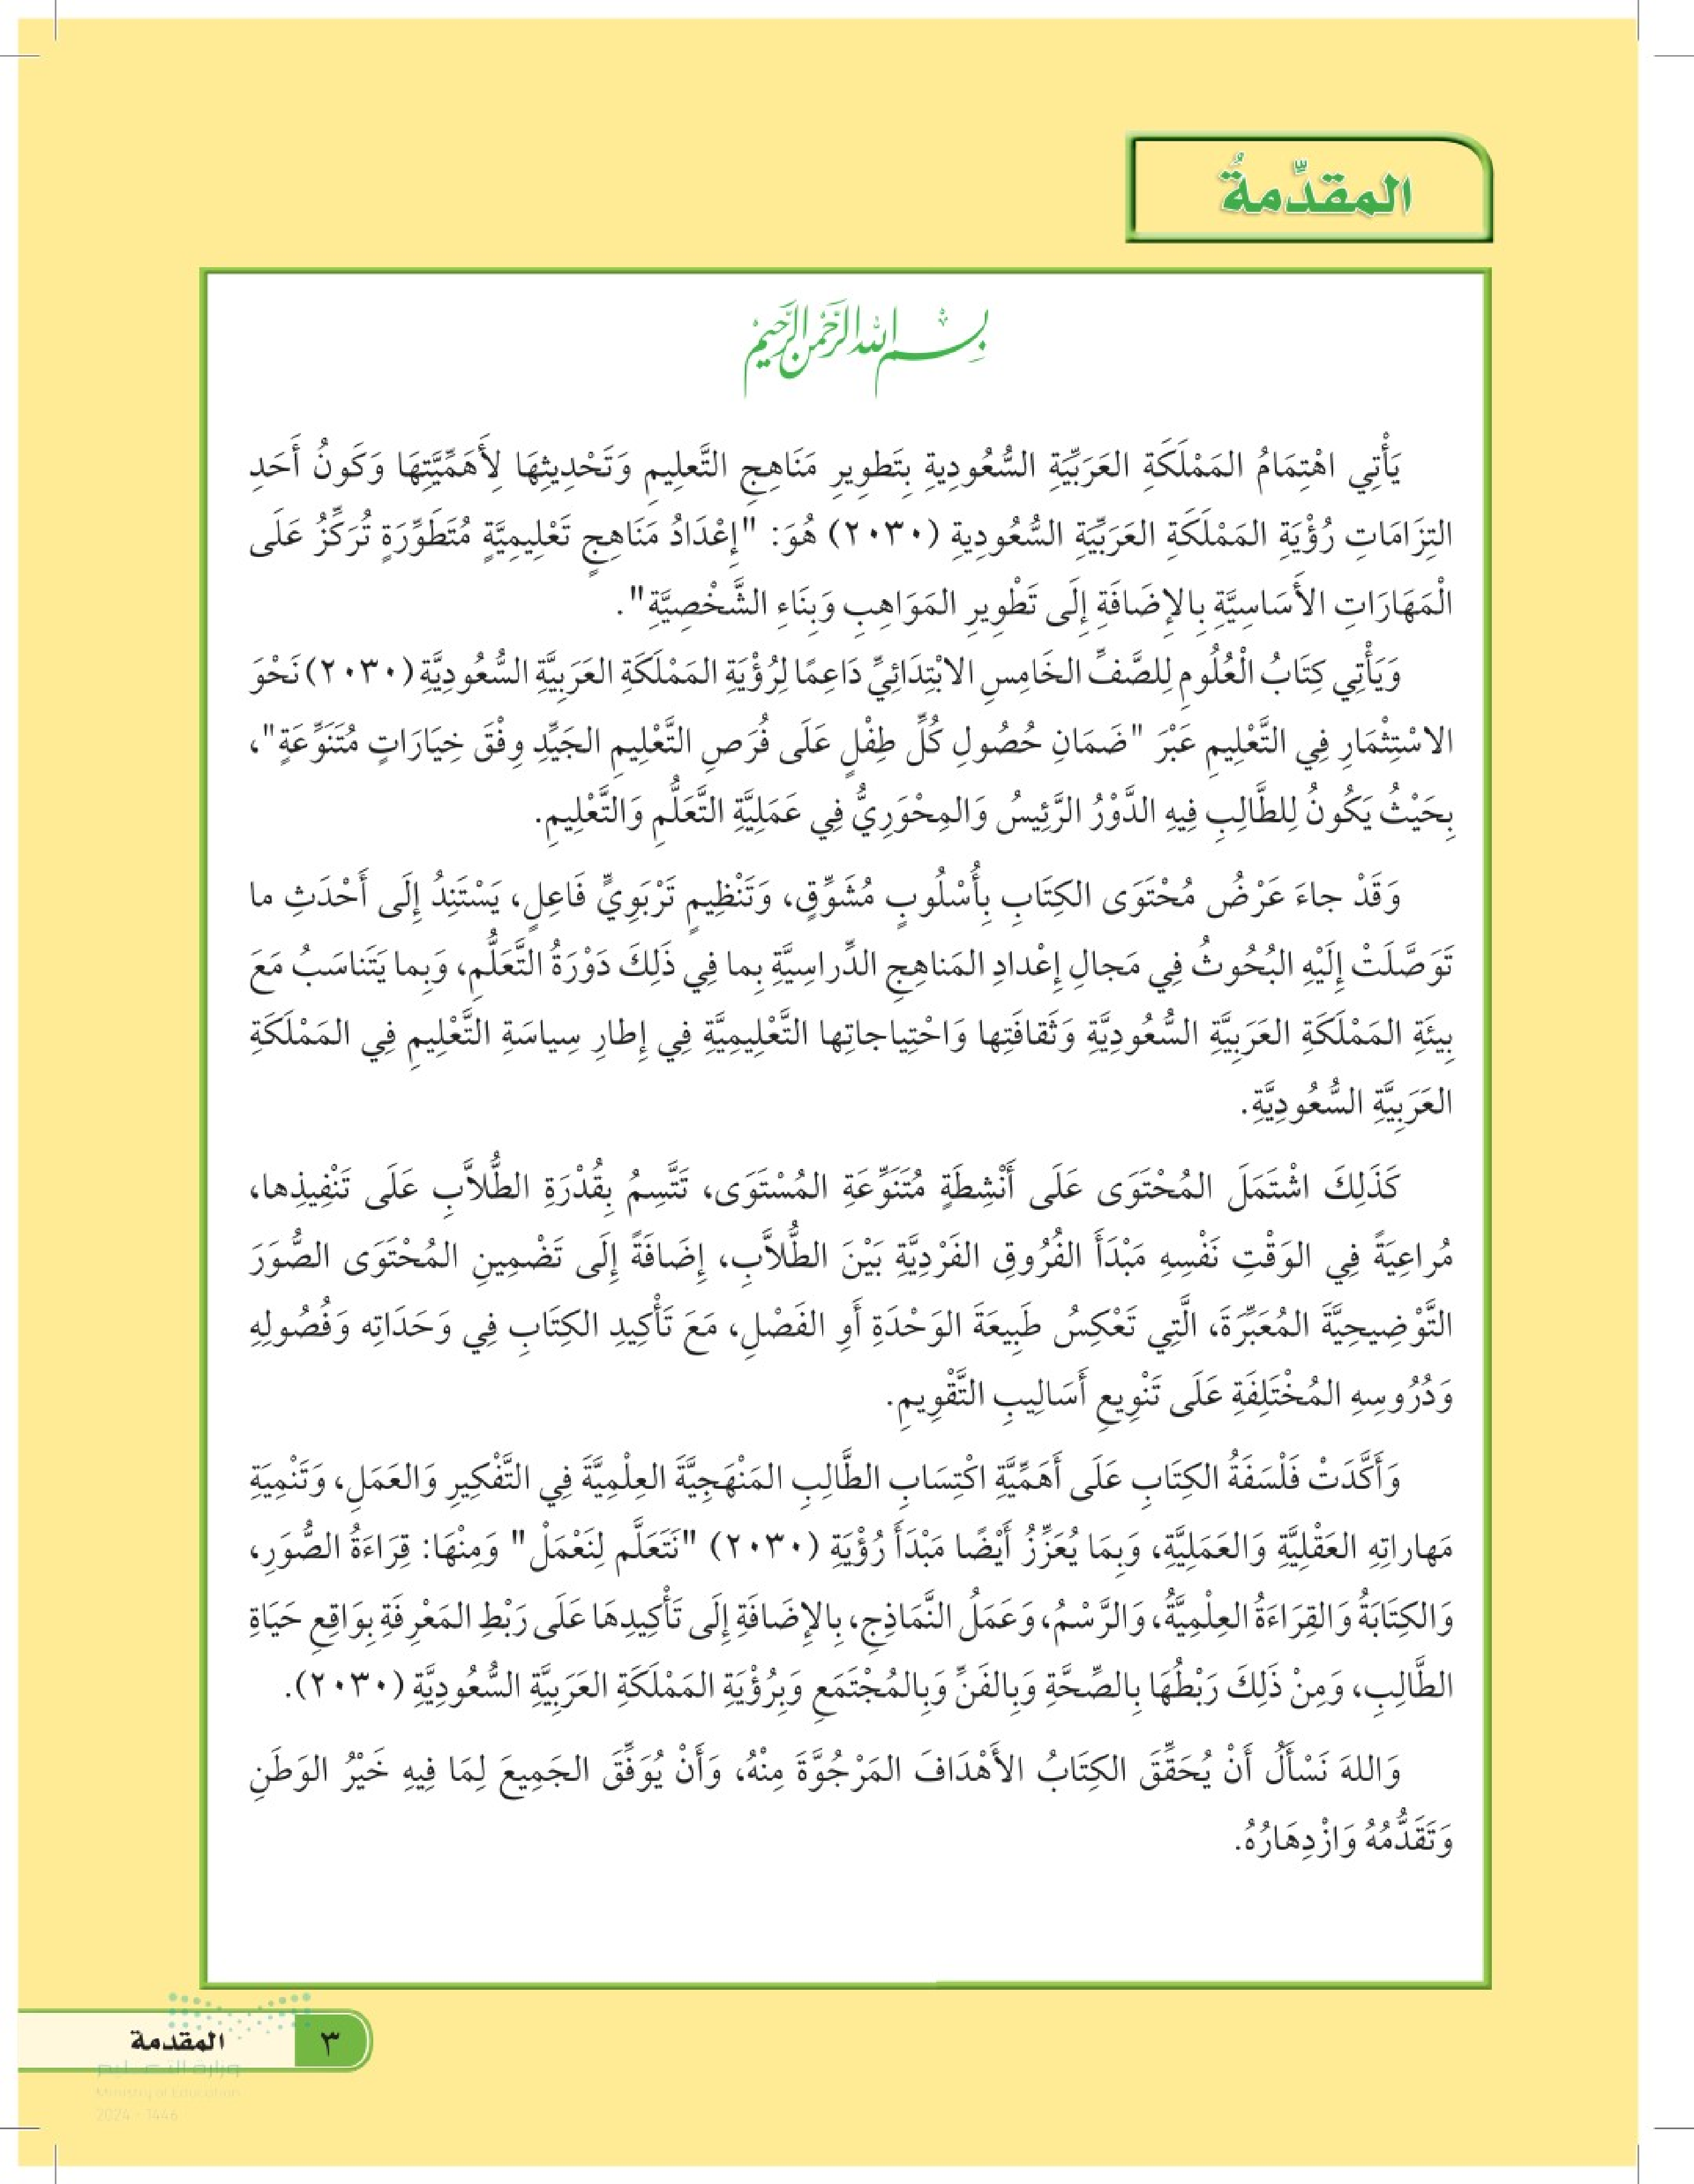 المقدِّمةُ
بِسْمِ اللهِ الرَّحْمنِ الرَّحِيمِ
يَأْتِي اهْتِمَامُ المَمْلَكَةِ العَرَبِّيَةِ السُّعُودِيةِ بِتَطوِيرِ مَنَاهِجِ التَّعلِيمِ وَتَحْدِيثِهَا لِأَهَمِّيَّتِهَا وَكَونُ أَحَدِ
التِزَامَاتِ رُؤْيَةِ المَمْلَكَةِ العَرَبِّيَةِ السُّعُودِيةِ (٢٠٣٠) هُوَ: "إِعْدَادُ مَنَاهِجٍ تَعْلِيمِيَّةٍ مُتَطَوِّرَةٍ تُرَكِّزُ عَلَى
الْمَهَارَاتِ الأَسَاسِيَّةِ بِالإِضَافَةِ إِلَى تَطْوِيرِ المَوَاهِبِ وَبِنَاءِ الشَّخْصِيَّةِ".
وَيَأْتِي كِتَابُ الْعُلُومِ لِلصَّفِّ الخَامِسِ الابْتِدَائِيِّ دَاعِمًا لِرُؤْيَةِ المَمْلَكَةِ العَرَبِيَّةِ السُّعُودِيَّةِ (٢٠٣٠) نَحْوَ
الاسْتِثْمَارِ فِي التَّعْلِيمِ عَبْرَ "ضَمَانِ حُصُولِ كُلِّ طِفْلٍ عَلَى فُرَصِ التَّعْلِيمِ الجَيِّدِ وِفْقَ خِيَارَاتٍ مُتَنَوِّعَةٍ"،
بِحَيْثُ يَكُونُ لِلطَّالِبِ فِيهِ الدَّوْرُ الرَّئِيسُ وَالمِحْوَرِيُّ فِي عَمَلِيَّةِ التَّعَلُّمِ وَالتَّعْلِيمِ.
وَقَدْ جاءَ عَرْضُ مُحْتَوَى الكِتَابِ بِأُسْلُوبٍ مُشَوِّقٍ، وَتَنْظِيمٍ تَرْبَوِيٍّ فَاعِلٍ، يَسْتَنِدُ إِلَى أَحْدَثِ ما
تَوَصَّلَتْ إِلَيْهِ البُحُوثُ فِي مَجالِ إِعْدادِ المَناهِجِ الدِّراسِيَّةِ بِما فِي ذَلِكَ دَوْرَةُ التَّعَلُّمِ، وَبِما يَتَناسَبُ مَعَ
بِيئَةِ المَمْلَكَةِ العَرَبِيَّةِ السُّعُودِيَّةِ وَثَقافَتِها وَاحْتِياجاتِها التَّعْلِيمِيَّةِ فِي إِطارِ سِياسَةِ التَّعْلِيمِ فِي المَمْلَكَةِ
العَرَبِيَّةِ السُّعُودِيَّةِ.
كَذَلِكَ اشْتَمَلَ المُحْتَوَى عَلَى أَنْشِطَةٍ مُتَنَوِّعَةِ المُسْتَوَى، تَتَّسِمُ بِقُدْرَةِ الطُّلاَّبِ عَلَى تَنْفِيذِها،
مُراعِيَةً فِي الوَقْتِ نَفْسِهِ مَبْدَأَ الفُرُوقِ الفَرْدِيَّةِ بَيْنَ الطُّلاَّبِ، إِضَافَةً إِلَى تَضْمِينِ المُحْتَوَى الصُّوَرَ
التَّوْضِيحِيَّةَ المُعَبِّرَةَ، الَّتِي تَعْكِسُ طَبِيعَةَ الوَحْدَةِ أَوِ الفَصْلِ، مَعَ تَأْكِيدِ الكِتَابِ فِي وَحَدَاتِه وَفُصُولِهِ
وَدُرُوسِهِ المُخْتَلِفَةِ عَلَى تَنْوِيعِ أَسَالِيبِ التَّقْوِيمِ.
وَأَكَّدَتْ فَلْسَفَةُ الكِتَابِ عَلَى أَهَمِّيَّةِ اكْتِسَابِ الطَّالِبِ المَنْهَجِيَّةَ العِلْمِيَّةَ فِي التَّفْكِيرِ وَالعَمَلِ، وَتَنْمِيَةِ
مَهاراتِهِ العَقْلِيَّةِ وَالعَمَلِيَّةِ، وَبِمَا يُعَزِّزُ أَيْضًا مَبْدَأَ رُؤْيَةِ (٢٠٣٠) "نَتَعَلَّم لِنَعْمَلْ" وَمِنْهَا: قِرَاءَةُ الصُّوَرِ،
وَالكِتَابَةُ وَالقِرَاءَةُ العِلْمِيَّةُ، وَالرَّسْمُ، وَعَمَلُ النَّمَاذِجِ، بِالإِضَافَةِ إِلَى تَأْكِيدِهَا عَلَى رَبْطِ المَعْرِفَةِ بِوَاقِعِ حَيَاةِ
الطَّالِبِ، وَمِنْ ذَلِكَ رَبْطُهَا بِالصِّحَّةِ وَبِالفَنِّ وَبِالمُجْتَمَعِ وَبِرُؤْيَةِ المَمْلَكَةِ العَرَبِيَّةِ السُّعُودِيَّةِ (٢٠٣٠).
وَاللهَ نَسْأَلُ أَنْ يُحَقِّقَ الكِتَابُ الأَهْدَافَ المَرْجُوَّةَ مِنْهُ، وَأَنْ يُوَفِّقَ الجَمِيعَ لِمَا فِيهِ خَيْرُ الوَطَنِ
وَتَقَدُّمُهُ وَازْدِهَارُهُ.
المقدمة ٣
وزارة التعليم
Ministry of Education
2024 - 1446